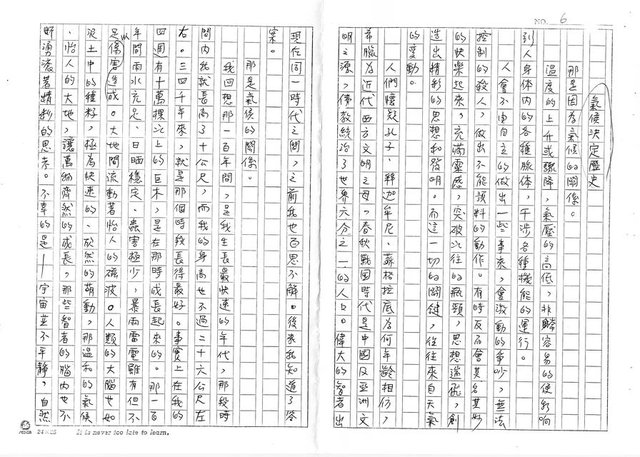 NO. 6
氣候決定歷史
那是因為氣候的關係。
溫度的上升或驟降，氣壓的高低，非常容易的便影响
到人身體內的各種腺体，干涉各種機能的運行。
人會不由自主的做出一些事來，會激動的爭吵，無法
控制的殺人，做出不能預料的動作。有時反而會莫名其妙
的快樂起來，充滿靈感，突破以往的瓶頸，思想遄飛，創
造出精彩的思想和發明。而這一切的關鍵，往往來自天氣
的變動。
人們懷疑孔子、釋迦牟尼、蘇格拉底為何年齡相仿，
希臘為近代西方文明之母，春秋戰國時代是中國及亞洲文
明之源，佛教統治了世界六分之一的人口。偉大的智者出
現在同一時代之間，之前我也百思不解。後來我知道了答
案。
那是氣候的關係。
我回想那一百年間，是我生長最快速的年代，那段時
間內我就長高了十公尺，而我的身高也不過二十六公尺左
右。三四千年來，就是那個時段長得最好。事實上在我的
四週有十萬棵以上的巨木，是在那時成長起來的。那一百
年間雨水充足，日晒穩定，蟲害極少，暴雨雷電雖有但不
足以傷害造成。大地間流動著怡人的磁波。人類的大腦也如
泥土中的種籽，極為快速的、欣然的萌動，那溫和的氣候
、怡人的大地，讓萬物齊然的成長，那些智者的腦內也不
斷湧滾著精彩的思未。不幸的是——宇宙並不平靜，自然
24×25 It is never too late to learn.